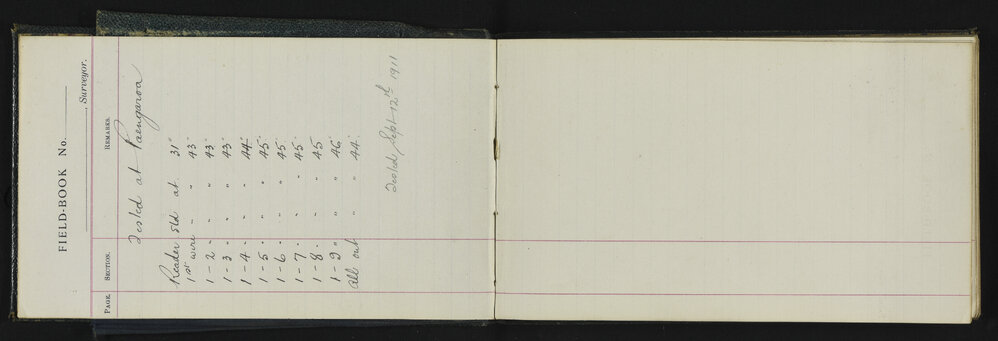 FIELD-BOOK No.
, Surveyor.
PAGE. SECTION. REMARKS.
Tested at Paengaroa
Reader std at 31"
1st wire " " 43"
1 - 2 " " 43"
1 - 3 " " 43"
1 - 4 " " 44"
1 - 5 " " 45"
1 - 6 " " 45"
1 - 7 " " 45"
1 - 8 " " 45
1 - 9 " " 46"
All out " " 44"
Tested Sept 12th 1911